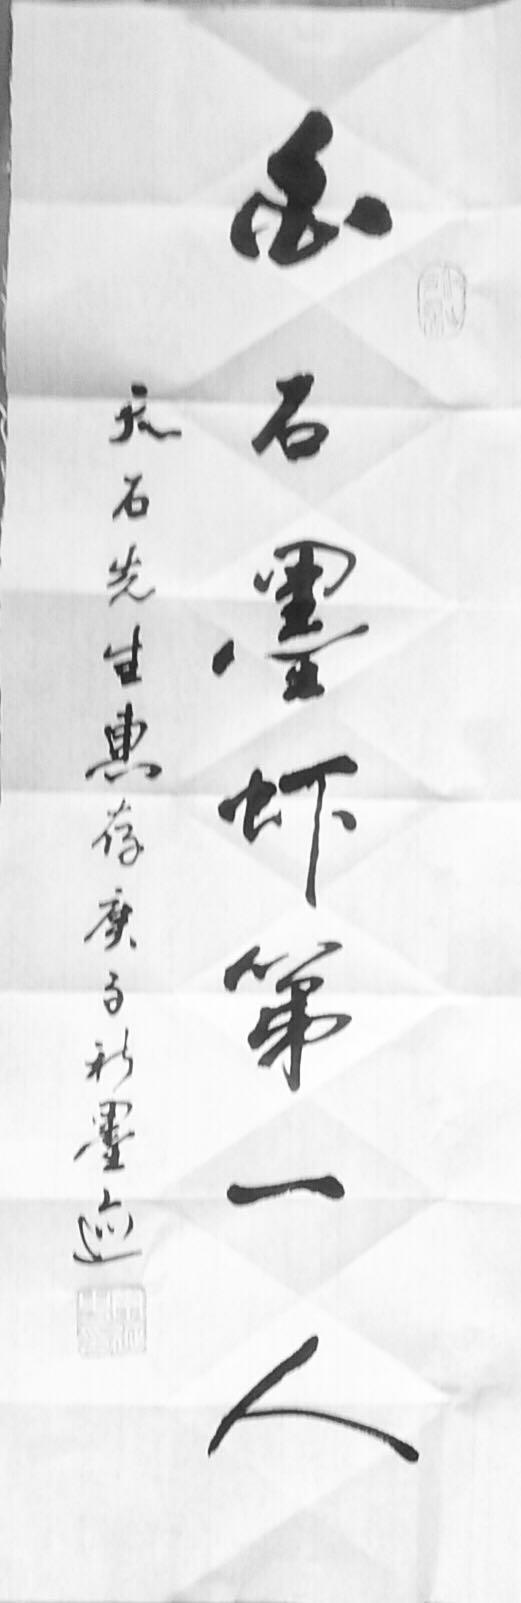 石墨虾第一人
石先生惠存庚子秋墨迹